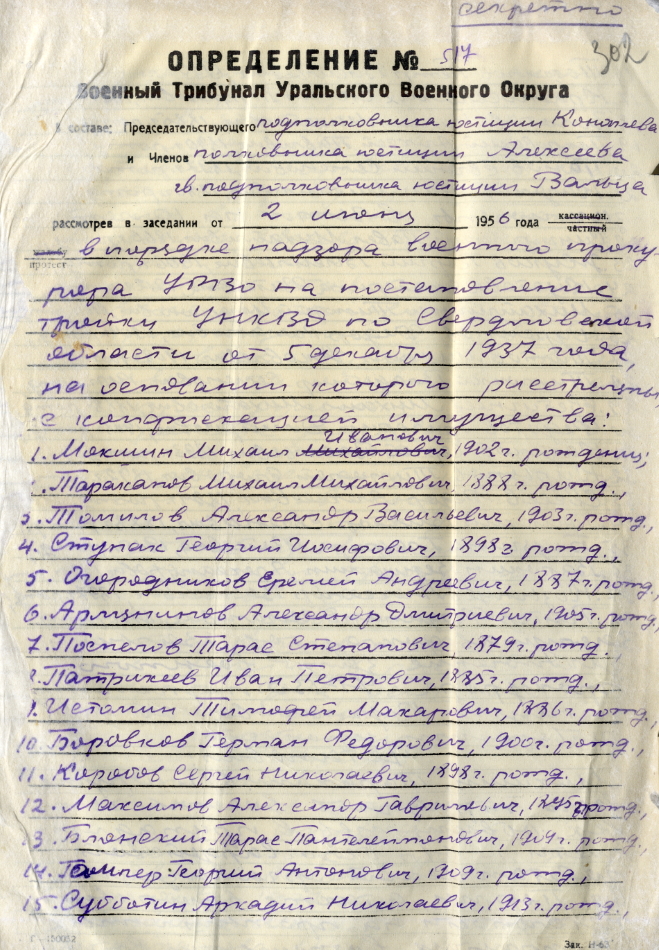 секретно
302
ОПРЕДЕЛЕНИЕ № 517
Военный Трибунал Уральского Военного Округа
в составе: Председательствующего подполковника юстиции Коноплева
и Членов полковника юстиции Алексеева
гв. подполковника юстиции Вальца
рассмотрев в заседании от 2 июня 1956 года кассацион.
частный
протест
в порядке надзора военного проку-
рора УрВО на постановление
тройки УНКВД по Свердловской
области от 5 декабря 1937 года,
на основании которого расстреляны
с конфискацией имущества:
Иванович
1. Мокшин Михаил Михайлович, 1902 г. рождения;
Тараканов Михаил Михайлович, 1888 г. рожд.,
3. Томилов Александр Васильевич, 1903 г. рожд.,
4. Ступак Георгий Иосифович, 1898 г. рожд.,
5. Огородников Еремей Андреевич, 1887 г. рожд.,
6. Александр Дмитриевич, 1905 г. рожд.,
7. Поспелов Тарас Степанович, 1879 г. рожд.,
8. Патрикеев Иван Петрович, 1885 г. рожд.,
9. Истомин Тимофей Макарович, 1886 г. рожд.,
10. Боровков Герман Федорович, 1900 г. рожд.,
11. Коробов Сергей Николаевич, 1898 г. рожд.,
12. Максимов Александр Гаврилович, 1895 г. рожд.,
13. Тарас Пантелеймонович, 1909 г. рожд.,
14. Георгий Антонович, 1909 г. рожд.,
15. Субботин Аркадий Николаевич, 1913 г. рожд.,
Зак.